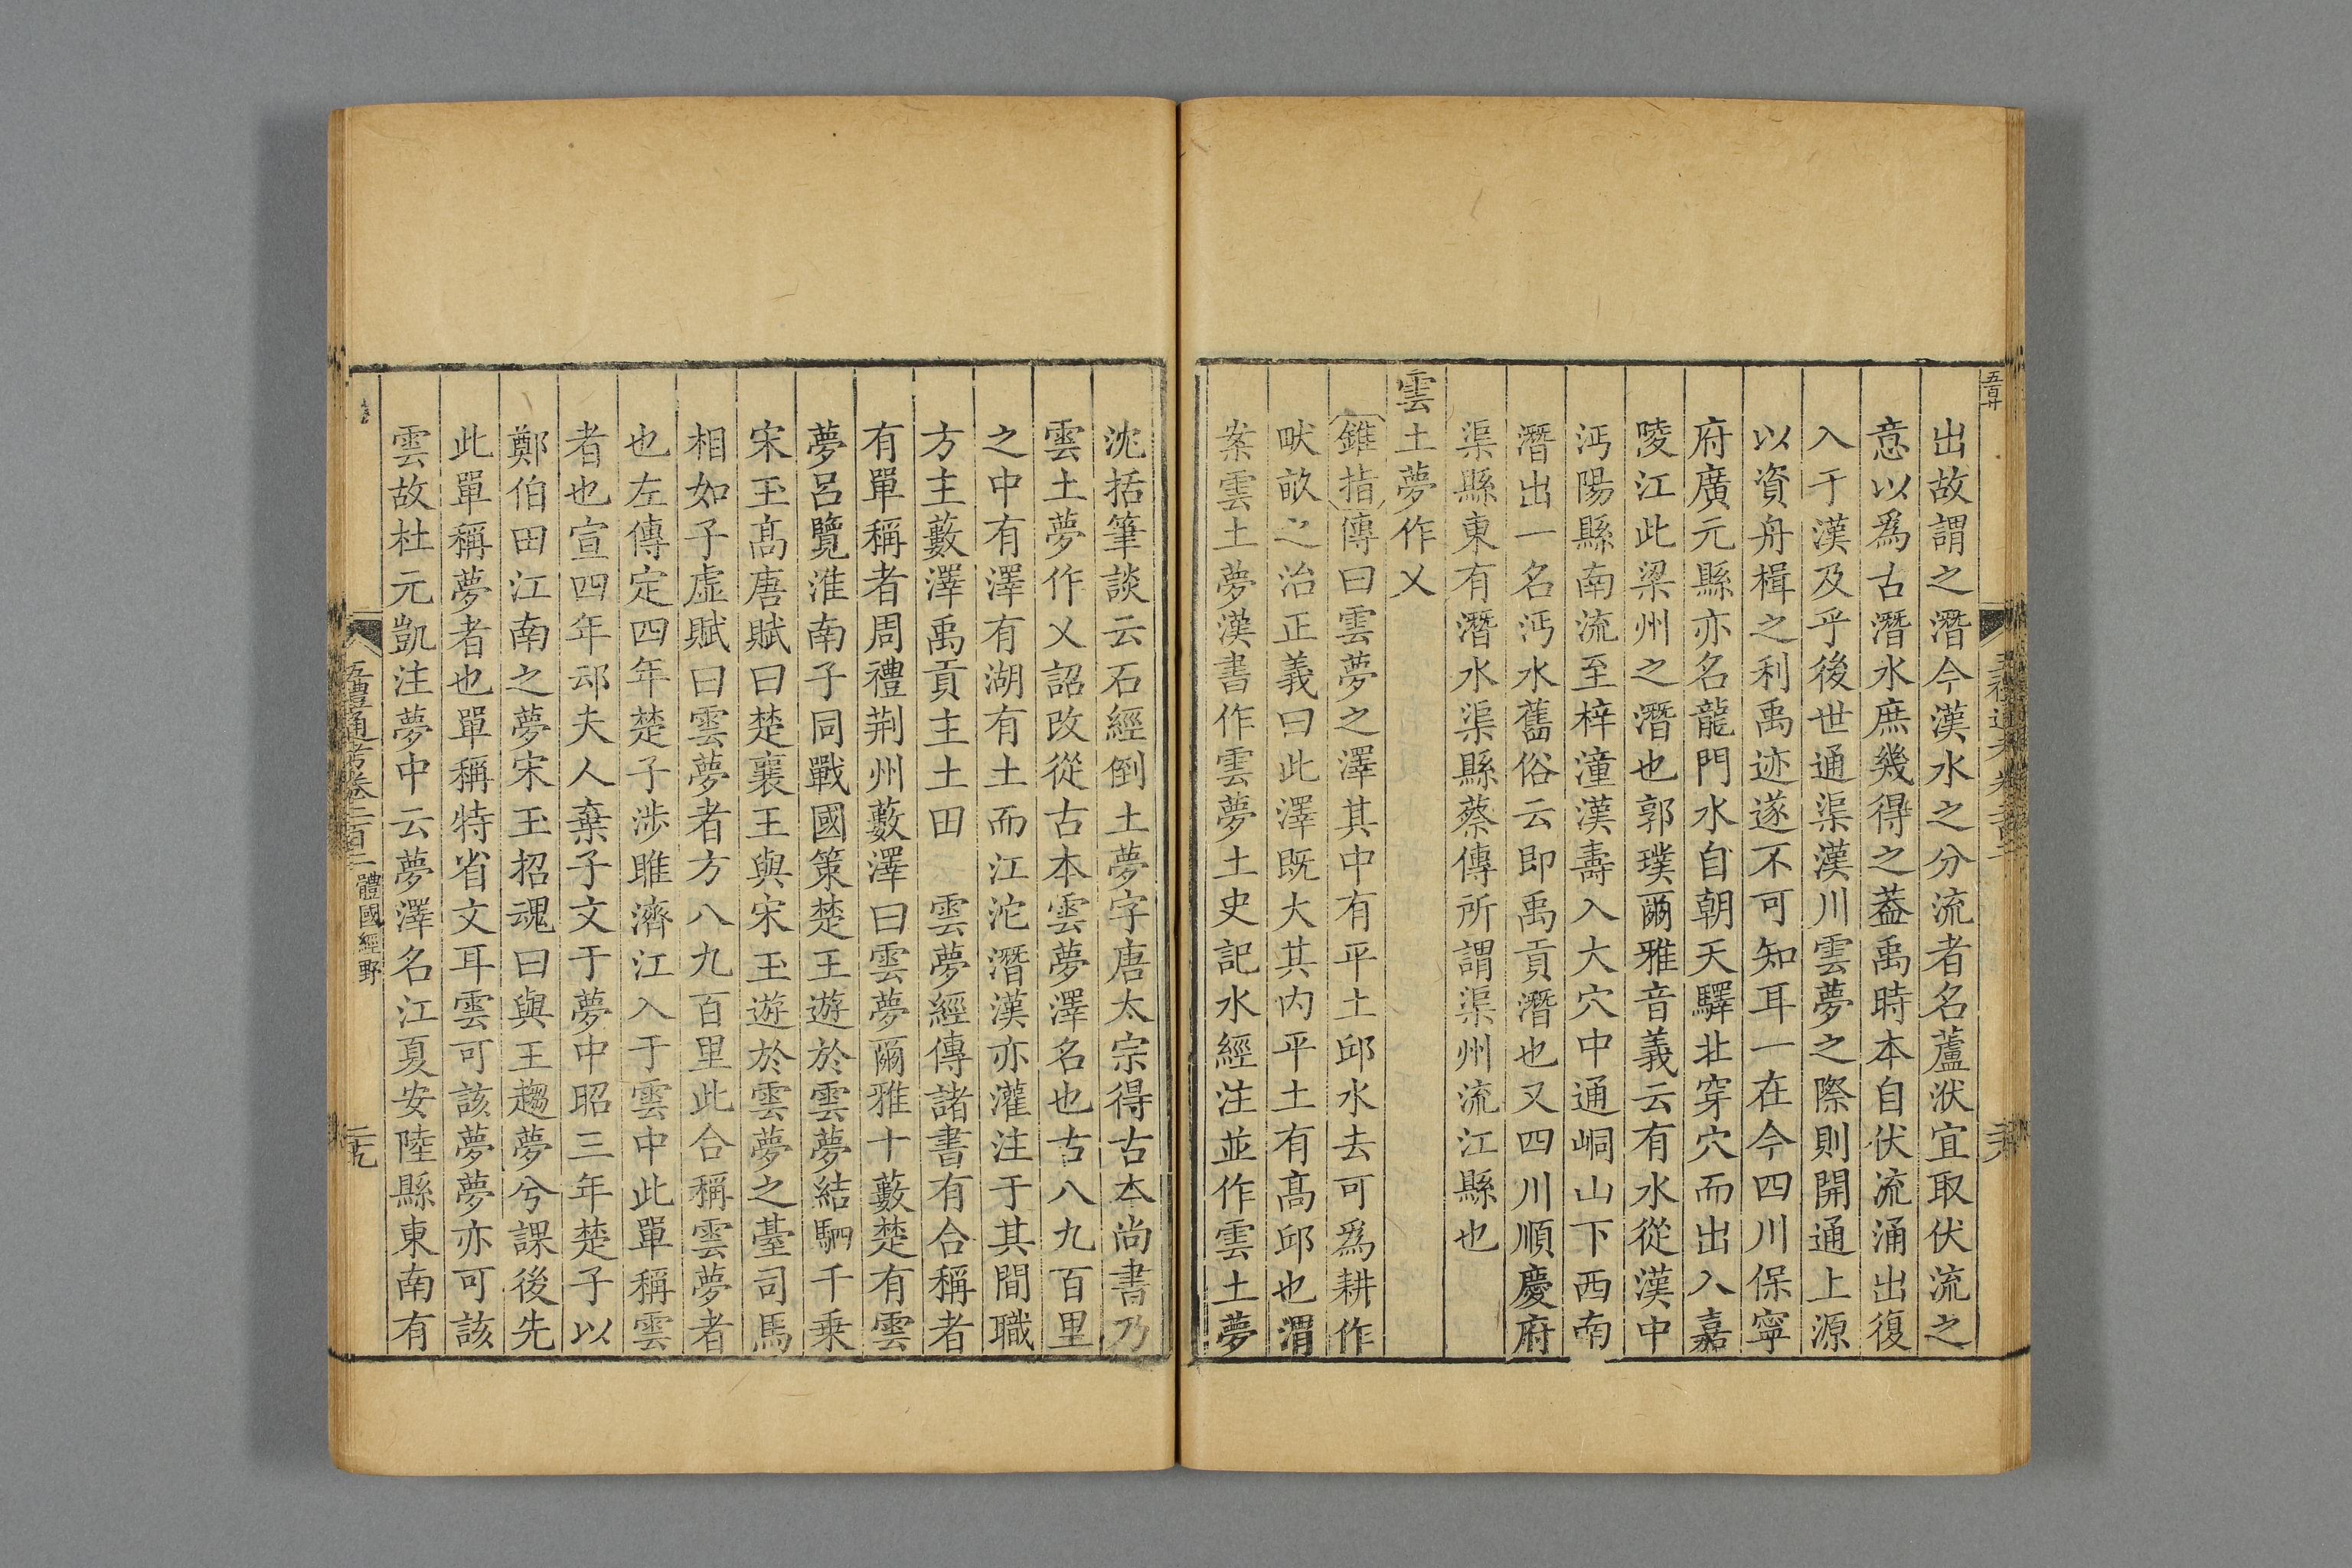 五百廿
出故謂之潛今漢水之分流者名蘆洑宜取伏流之
意以爲古潛水庶幾得之葢禹時本自伏流涌出復
入于漢及乎後世通渠漢川雲夢之際則開通上源
以資舟楫之利禹迹遂不可知耳一在今四川保寧
府廣元縣亦名龍門水自朝天驛北穿穴而出入嘉
陵江此梁州之潛也郭璞爾雅音義云有水從漢中
沔陽縣南流至梓潼漢壽入大穴中通峒山下西南
潛出一名沔水舊俗云即禹貢潛也又四川順慶府
渠縣東有潛水渠縣蔡傳所謂渠州流江縣也
雲土夢作乂
錐指傳曰雲夢之澤其中有平土邱水去可爲耕作
畎畝之治正義曰此澤既大其内平土有髙邱也渭
案雲土夢漢書作雲夢土史記水經注並作雲土夢
沈括筆談云石經倒土夢字唐太宗得古本尚書乃
雲土夢作乂詔改從古本雲夢澤名也古八九百里
之中有澤有湖有土而江沱潛漢亦灌注于其間職
方主藪澤禹貢主土田 雲夢經傳諸書有合稱者
有單稱者周禮荆州藪澤曰雲夢爾雅十藪楚有雲
夢呂覽淮南子同戰國策楚王遊於雲夢結駟千乗
宋玉髙唐賦曰楚襄王與宋玉遊於雲夢之臺司馬
相如子虛賦曰雲夢者方八九百里此合稱雲夢者
也左傳定四年楚子涉雎濟江入于雲中此單稱雲
者也宣四年䢵夫人棄子文于夢中昭三年楚子以
鄭伯田江南之夢宋玉招魂曰與王趨夢兮課後先
此單稱夢者也單稱特省文耳雲可該夢夢亦可該
雲故杜元凱注夢中云夢澤名江夏安陸縣東南有
五禮通考卷二百二 體國經野